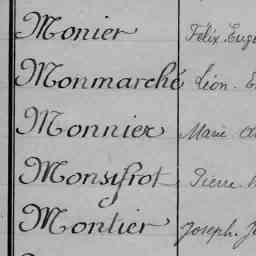 Monier Félix Eugè
Monmarché Léon. E
Monnier Marie
Monsifrot Pierre
Montier Joseph. J